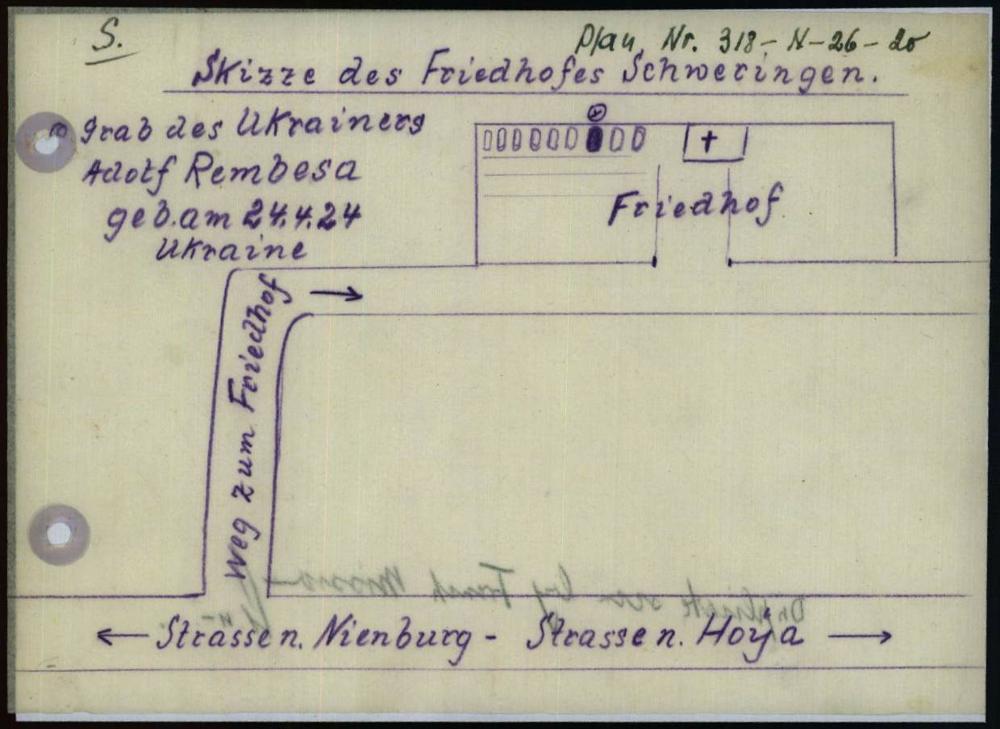 S.
Plan Nr. 318-N-26-20
Skizze des Friedhofes Schweringen.
Grab des Ukrainers
Adolf Rembesa
geb. am 24.4.24
Ukraine
Friedhof
Weg zum Friedhof
← Strasse n. Nienburg - Strasse n. Hoya →